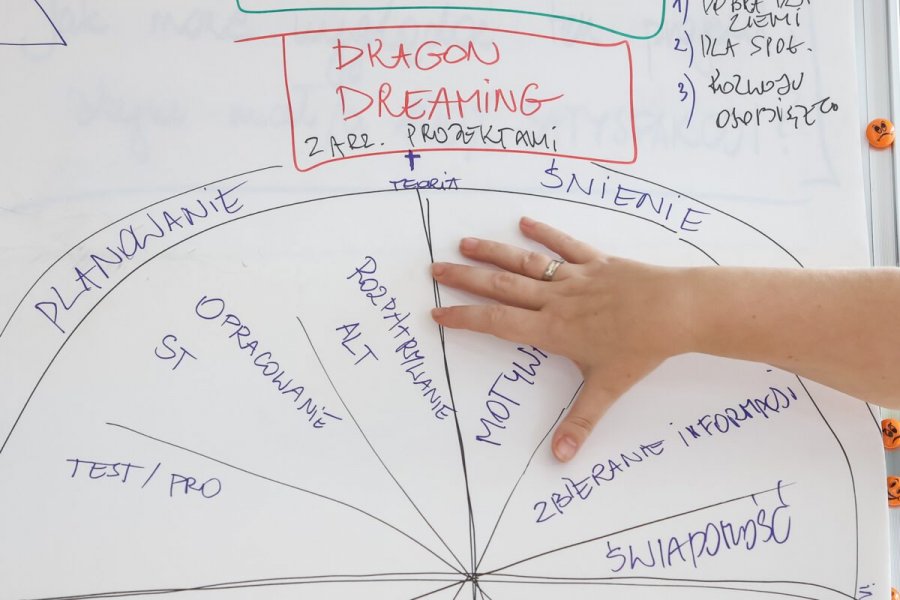 1) DOBRE DLA
ZIEMI
2) DLA SPOŁ.
3) ROZWOJU
OSOBISTEGO
DRAGON
DREAMING
ZARZ. PROJEKTAMI
TEORIA
PLANOWANIE
ŚNIENIE
ROZPATRYWANIE
ALT
OPRACOWANIE
ST
MOTYW
ZBIERANIE INFORMACJI
TEST / PRO
ŚWIADOMOŚĆ